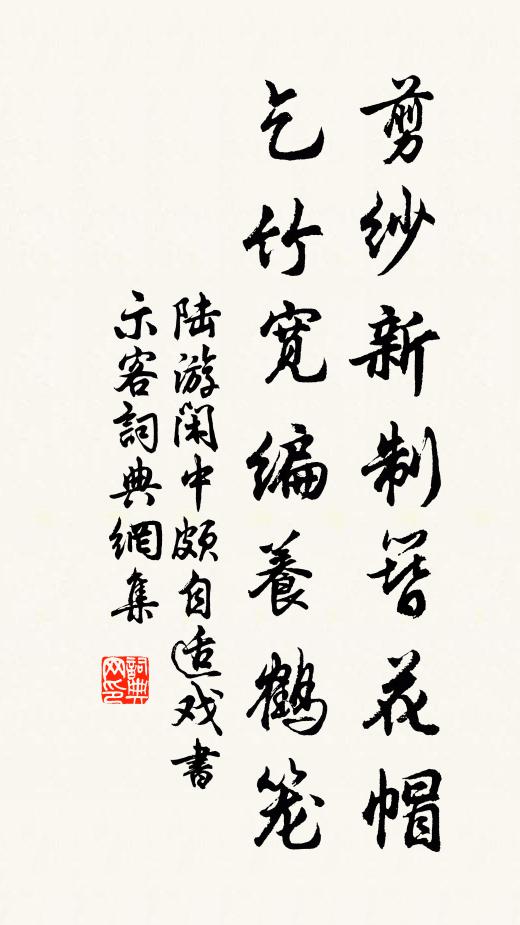 剪纱新制簪花帽
乞竹宽编养鹤笼
陆游闲中颇自适戏书
示客词典網集
詞典网印